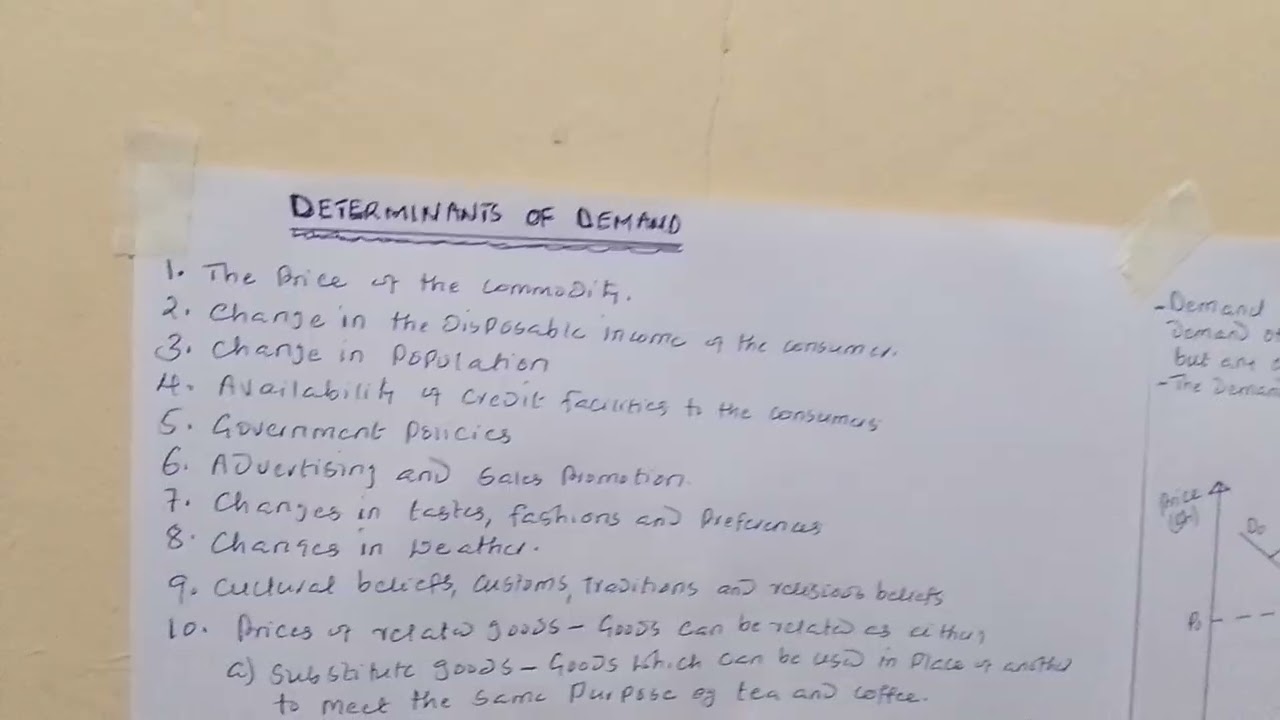 DETERMINANTS OF DEMAND
1. The Price of the commodity.
2. Change in the Disposable income of the consumer.
3. Change in Population
4. Availability of credit facilities to the consumers
5. Government Policies
6. Advertising and Sales Promotion.
7. Changes in tastes, fashions and Preferences
8. Changes in weather.
9. Cultural beliefs, customs, traditions and religious beliefs
10. Prices of related goods – Goods can be related as either;
a) Substitute goods – Goods which can be used in Place of another
to meet the same Purpose eg tea and coffee.
- Demand
Demand
but are
- The Deman
Price
Do
P0